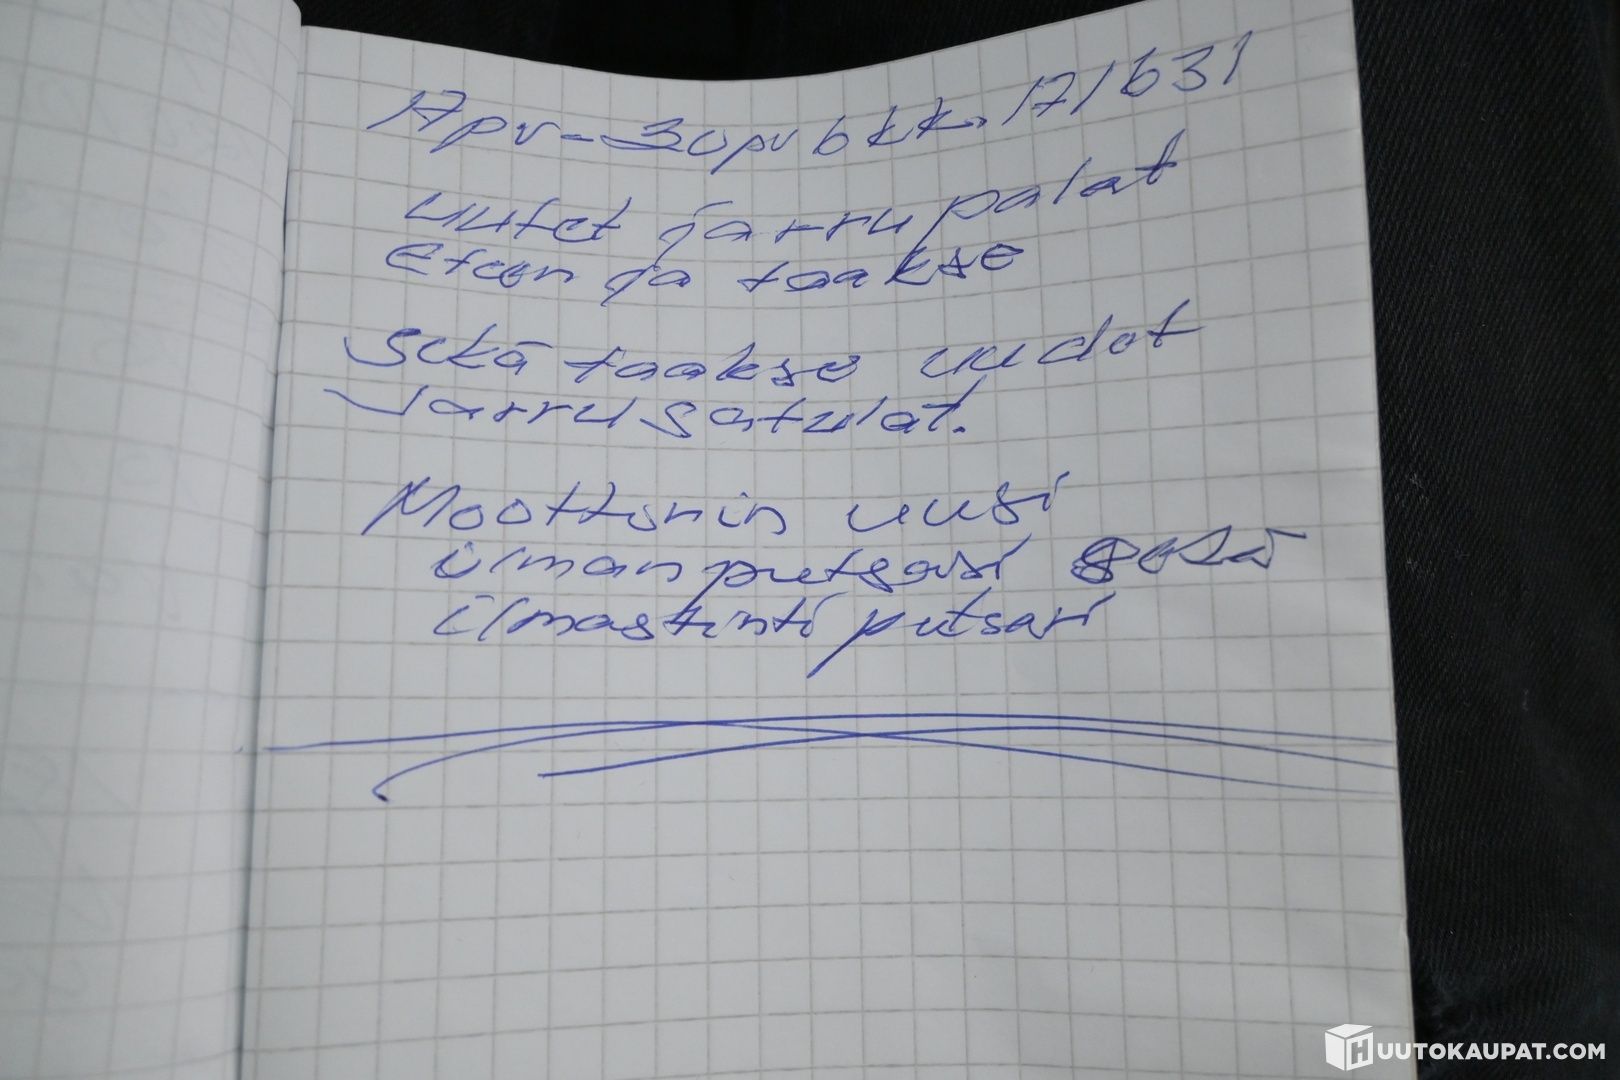 17pv-30pv 6kk. 171631
uutet jarrupalat
eteen ja taakse
Sekä taakse uudet
Jarrusatulat.
Moottorin uusi
ilmanputsari sekä
ilmastinti putsari
HUUTOKAUPAT.COM